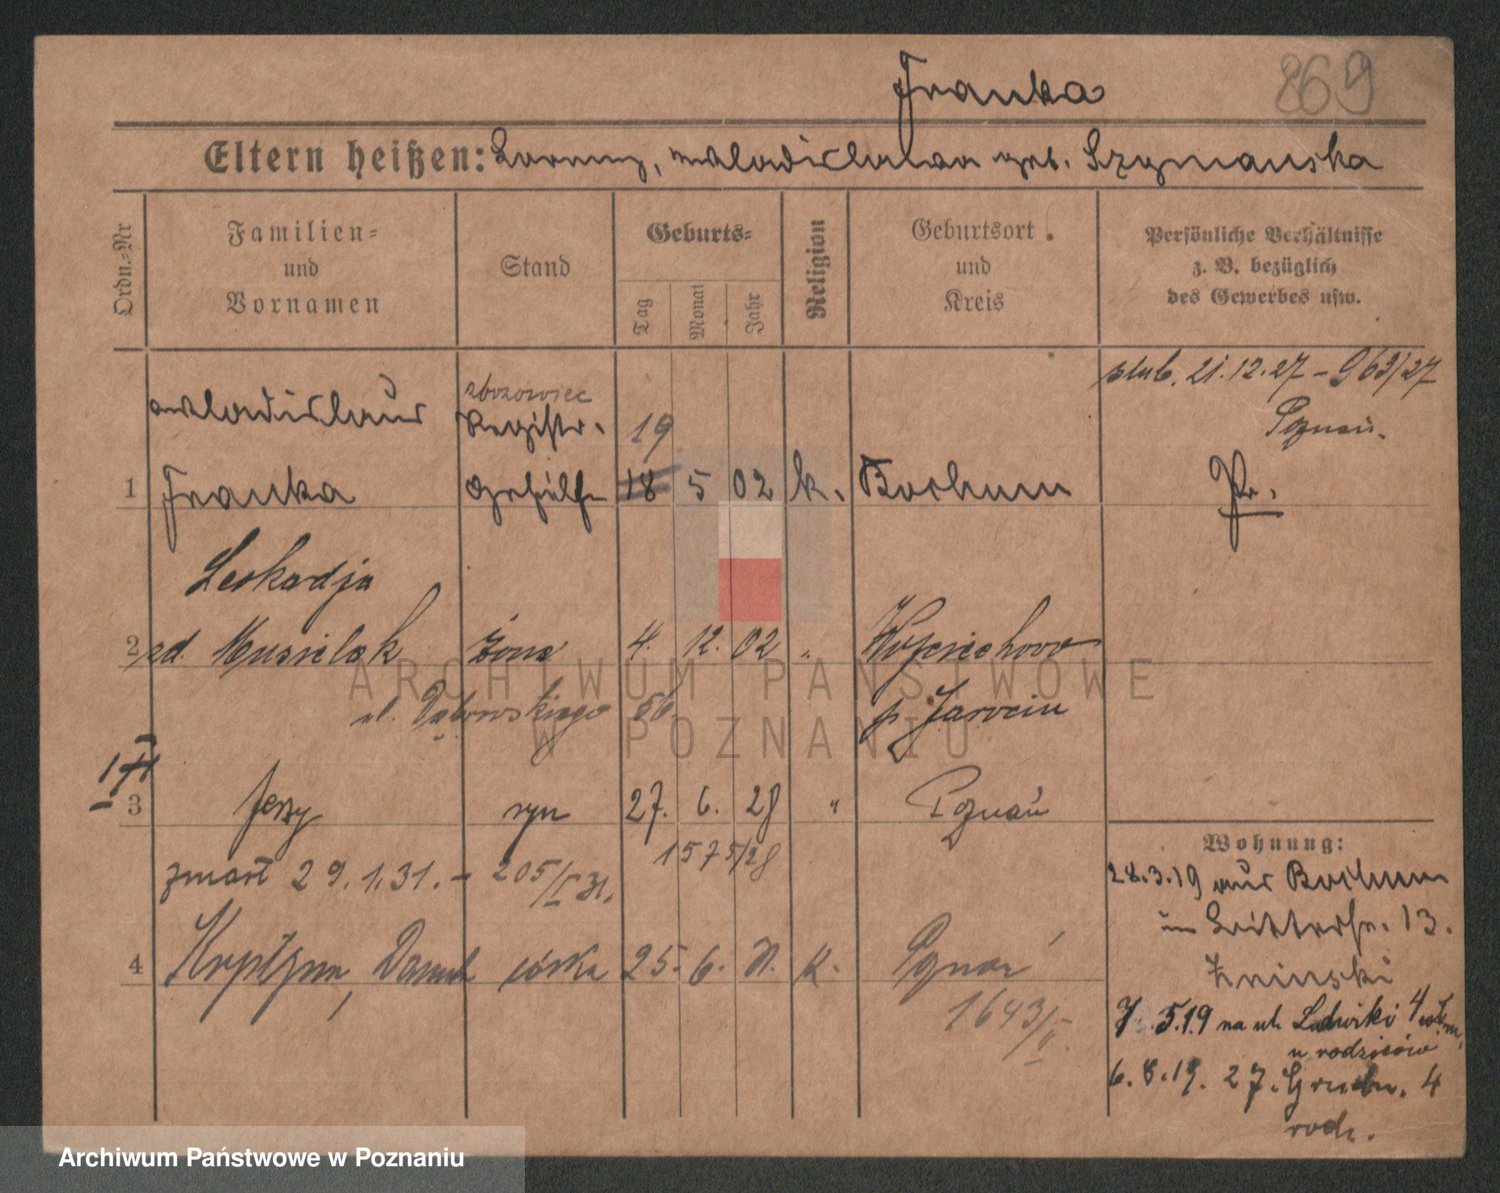 Franka
869
Eltern heißen: Lorenz, Wladislawa geb. Szymanska
Ordn.-Nr
Familien- und Vornamen
Stand
Geburts-
Tag
Monat
Jahr
Religion
Geburtsort und Kreis
Persönliche Verhältnisse z. B. bezüglich des Gewerbes usw.
ślub. 21.12.27 - 963/27
Poznań.
zbożowiec
Wladislaus Registr. 19
1 Franka Gehülfe 18 5 02 k. Bochum Pr.
Leokadja
2 zd. Musielak żona 4. 12. 02 " Wojciechowo
ul. Dąbrowskiego 56 p. Jarocin
3 Jerzy syn 27. 6. 28 " Poznań
1575/28
zmarł 29.1.31. - 205/I 31.
4 Krystyna, Danuta córka 25. 6. 31. k. Poznań
1643/II
Wohnung:
28.3.19 aus Bochum
13.
Zninski
7. 5.19 na ul. Ludwiki 4
u rodziców
6.8.19. 27. Grudn. 4
rodz.
ARCHIWUM PAŃSTWOWE
W POZNANIU
Archiwum Państwowe w Poznaniu